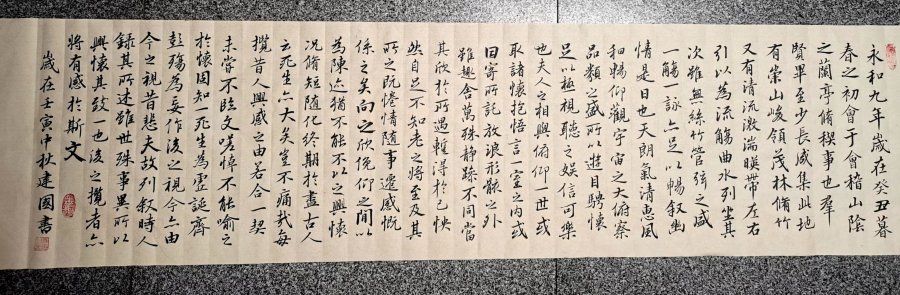 永和九年歲在癸丑暮
春之初會于會稽山陰
之蘭亭脩稧事也羣
賢畢至少長咸集此地
有崇山峻領茂林脩竹
又有清流激湍暎帶左右
引以為流觴曲水列坐其
次雖無絲竹管弦之盛
一觴一詠亦足以暢叙幽
情是日也天朗氣清惠風
和暢仰觀宇宙之大俯察
品類之盛所以遊目騁懷
足以極視聽之娛信可樂
也夫人之相與俯仰一世或
取諸懷抱悟言一室之內或
因寄所託放浪形骸之外
雖趣舍萬殊静躁不同當
其欣於所遇輒得於己怏
然自足不知老之將至及其
所之既惓情隨事遷感慨
係之矣向之欣俛仰之間以
為陳迹猶不能不以之興懷
況脩短隨化終期於盡古人
云死生亦大矣豈不痛哉每
攬昔人興感之由若合一契
未嘗不臨文嗟悼不能喻之
於懷固知一死生為虛誕齊
彭殤為妄作後之視今亦由
今之視昔悲夫故列叙時人
錄其所述雖世殊事異所以
興懷其致一也後之攬者亦
將有感於斯文
歲在壬寅中秋建國書